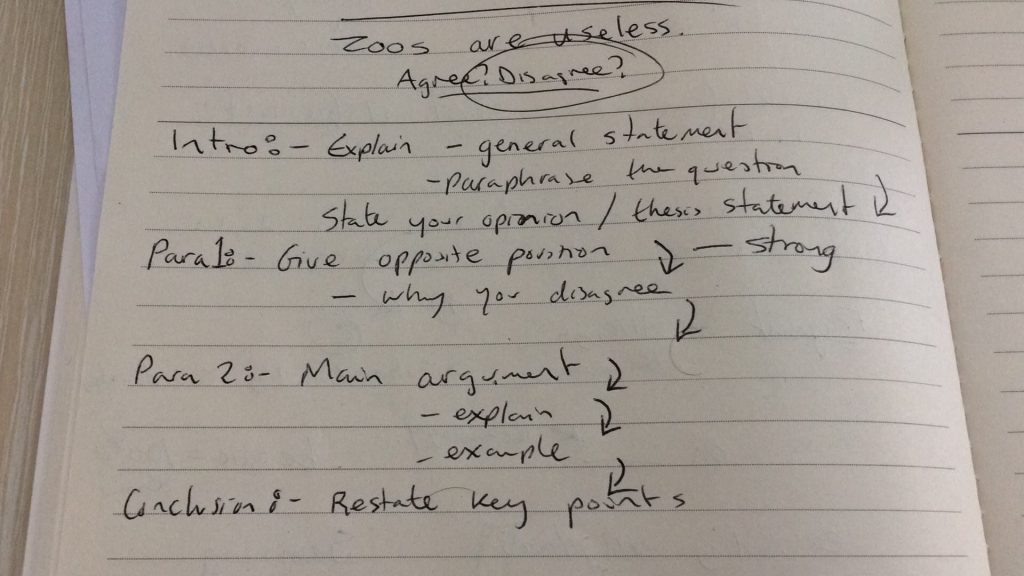 Zoos are useless.
Agree? Disagree?
Intro:- Explain - general statement
- paraphrase the question
State your opinion / thesis statement
Para 1:- Give opposite position — strong
- why you disagree
Para 2:- Main argument
- explain
- example
Conclusion:- Restate key points